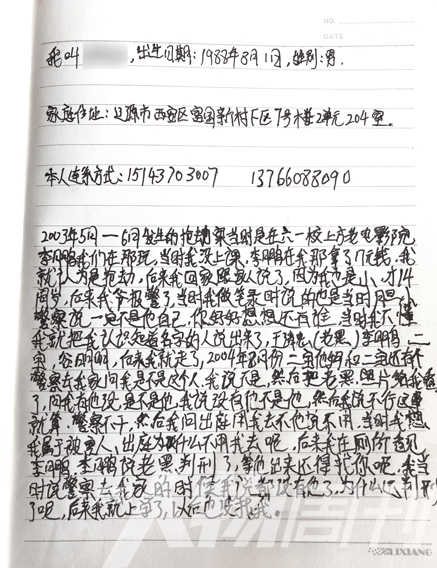 NO.
DATE
我叫 ,出生日期:1988年8月1日,性别:男.
家庭住址:辽源市西安区富国新村F区7号楼2单元204室.
本人联系方式:15143703007 13766088090
2003年5月—6月发生的抢劫案当时是在六一校上方老电影院
李鹏我们在那玩,当时我没上课,李鹏在我那拿了几元钱,我
就认为是抢劫,后来我回家跟家人说了,因为我也是小,才14
周岁,后来我爷报警了,当时我做笔录时说的也是当时
警察说一定不是他自己,你好好想想还有谁,当时我不懂
我就把我认识知道名字的人说出来了,于 (老黑)李鹏,二
谷明明,后来我就走了,2004年8月份二 他妈和二 还有个
警察在我家问我是不是这个人,我说不是,然后把老黑照片给我看
了,问我有他没,是不是他,我说没有他不是他,然后我说不行这事
就算,警察不干,然后我问出庭用我去不他说不用,当时我想
我属于被害人,出庭为啥什么不用我去呢,后来我在网的看见
李鹏,李鹏说老黑判刑了,等他出来还得找你呢,我当
时说警察去我家的时候我说都没有他了,为什么还判刑
了呢,后来我就上学了,以后也没找我.
人物周刊
LIXIANG